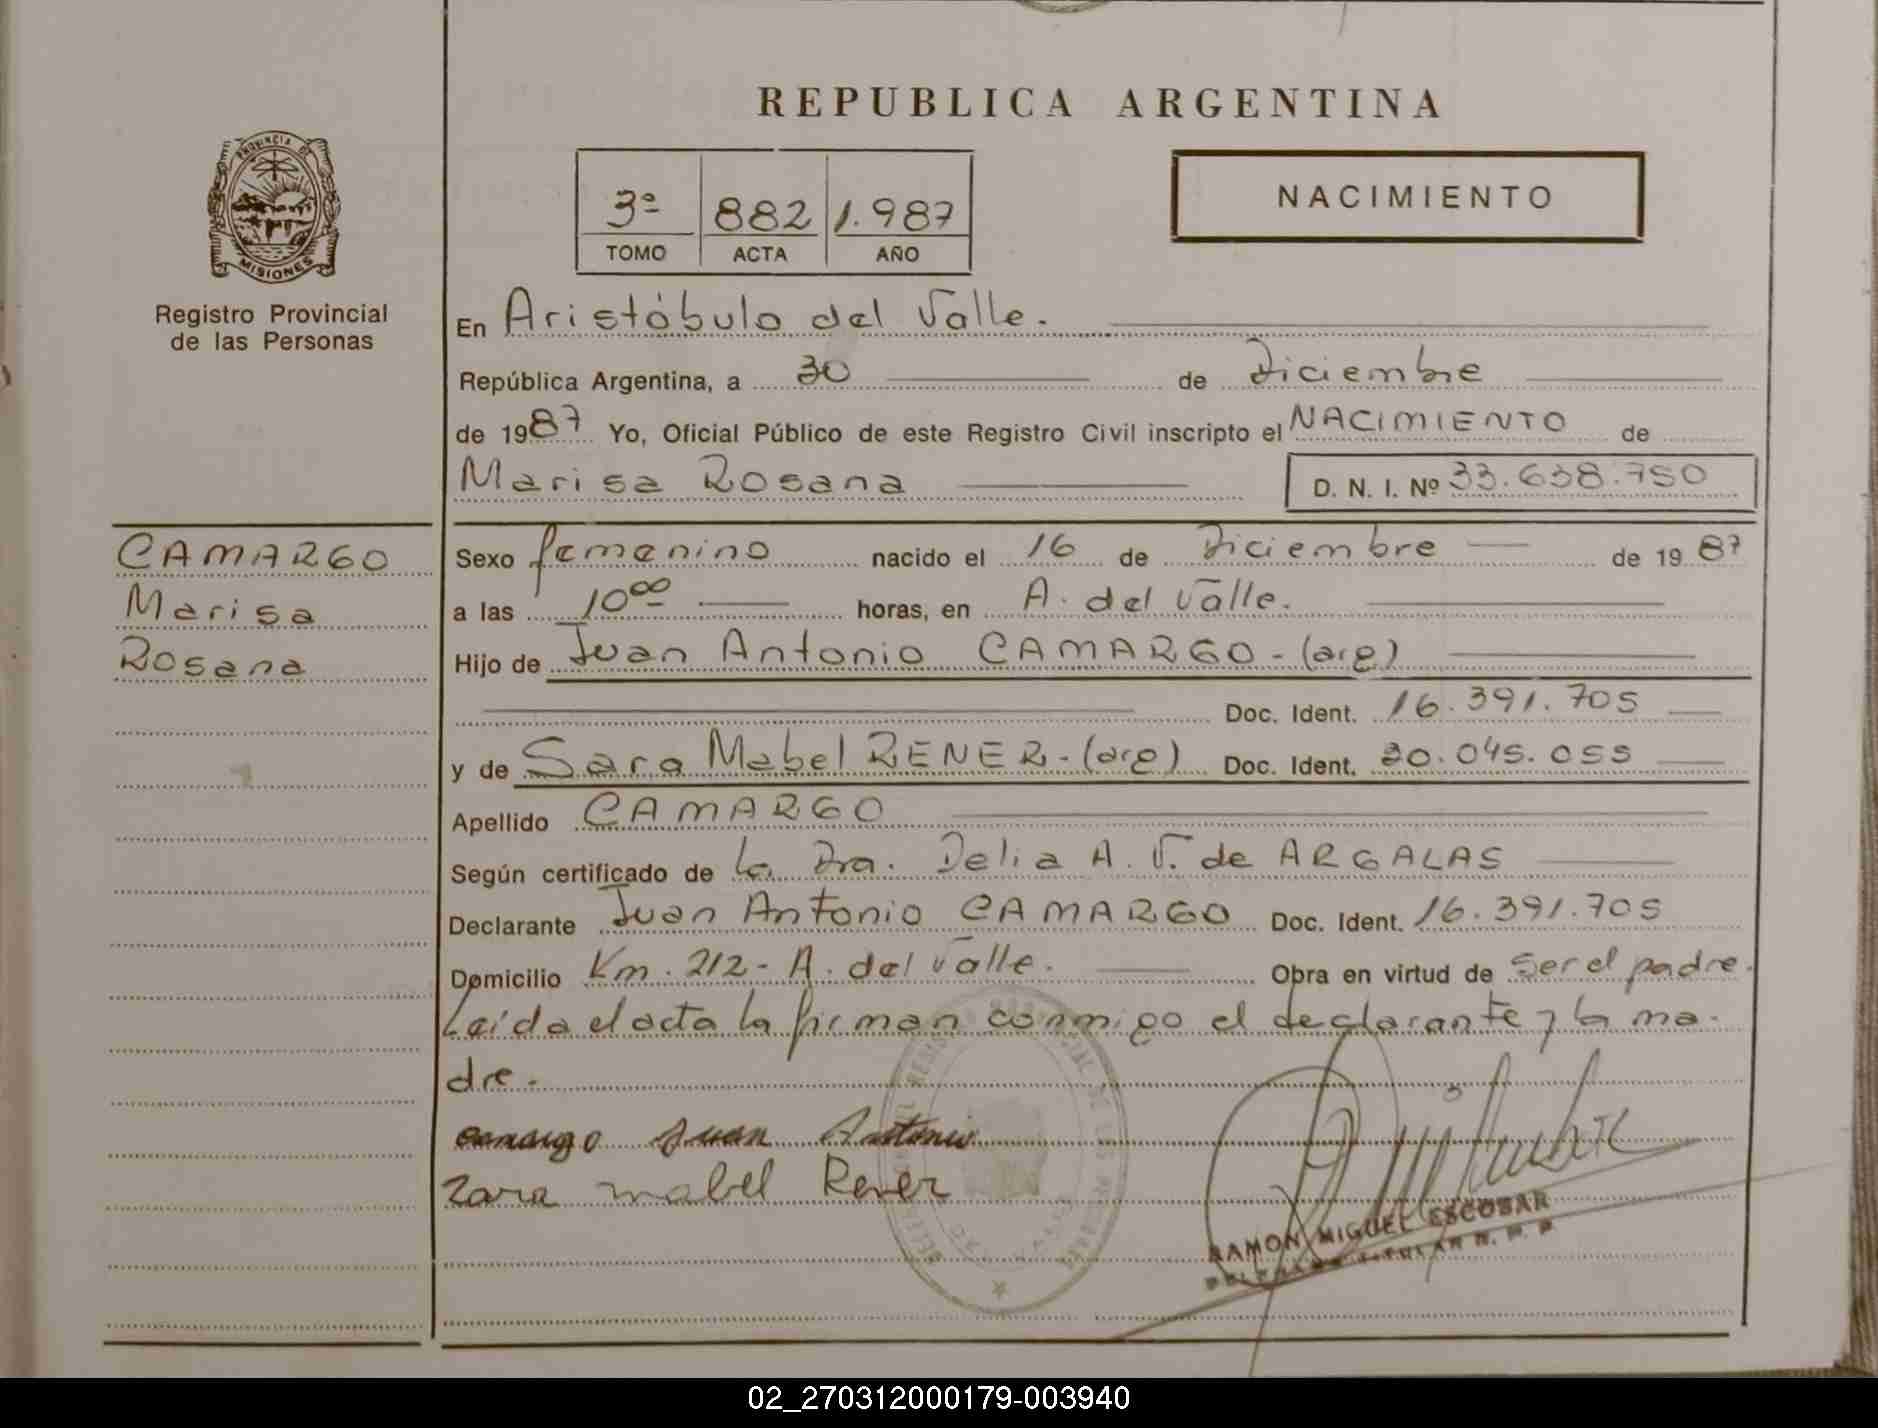 REPUBLICA ARGENTINA
PROVINCIA DE
MISIONES
Registro Provincial
de las Personas
3ª 882 1.987
TOMO ACTA AÑO
NACIMIENTO
En Aristóbulo del Valle.
República Argentina, a 30 de Diciembre
de 1987 Yo, Oficial Público de este Registro Civil inscripto el NACIMIENTO de
Marisa Rosana D. N. I. Nº 33.638.750
CAMARGO
Marisa
Rosana
Sexo femenino nacido el 16 de Diciembre de 1987
a las 10⁰⁰ horas, en A. del Valle.
Hijo de Juan Antonio CAMARGO - (arg)
Doc. Ident. 16.391.705
y de Sara Mabel RENER - (arg) Doc. Ident. 20.045.055
Apellido CAMARGO
Según certificado de la Dra. Delia A. V. de ARGALAS
Declarante Juan Antonio CAMARGO Doc. Ident. 16.391.705
Domicilio Km. 212 - A. del Valle. Obra en virtud de ser el padre.
Leída el acta la firman conmigo el declarante y la ma-
dre.
camargo Juan Antonio
Zara mabel Rener
RAMON MIGUEL ESCOBAR
02_270312000179-003940